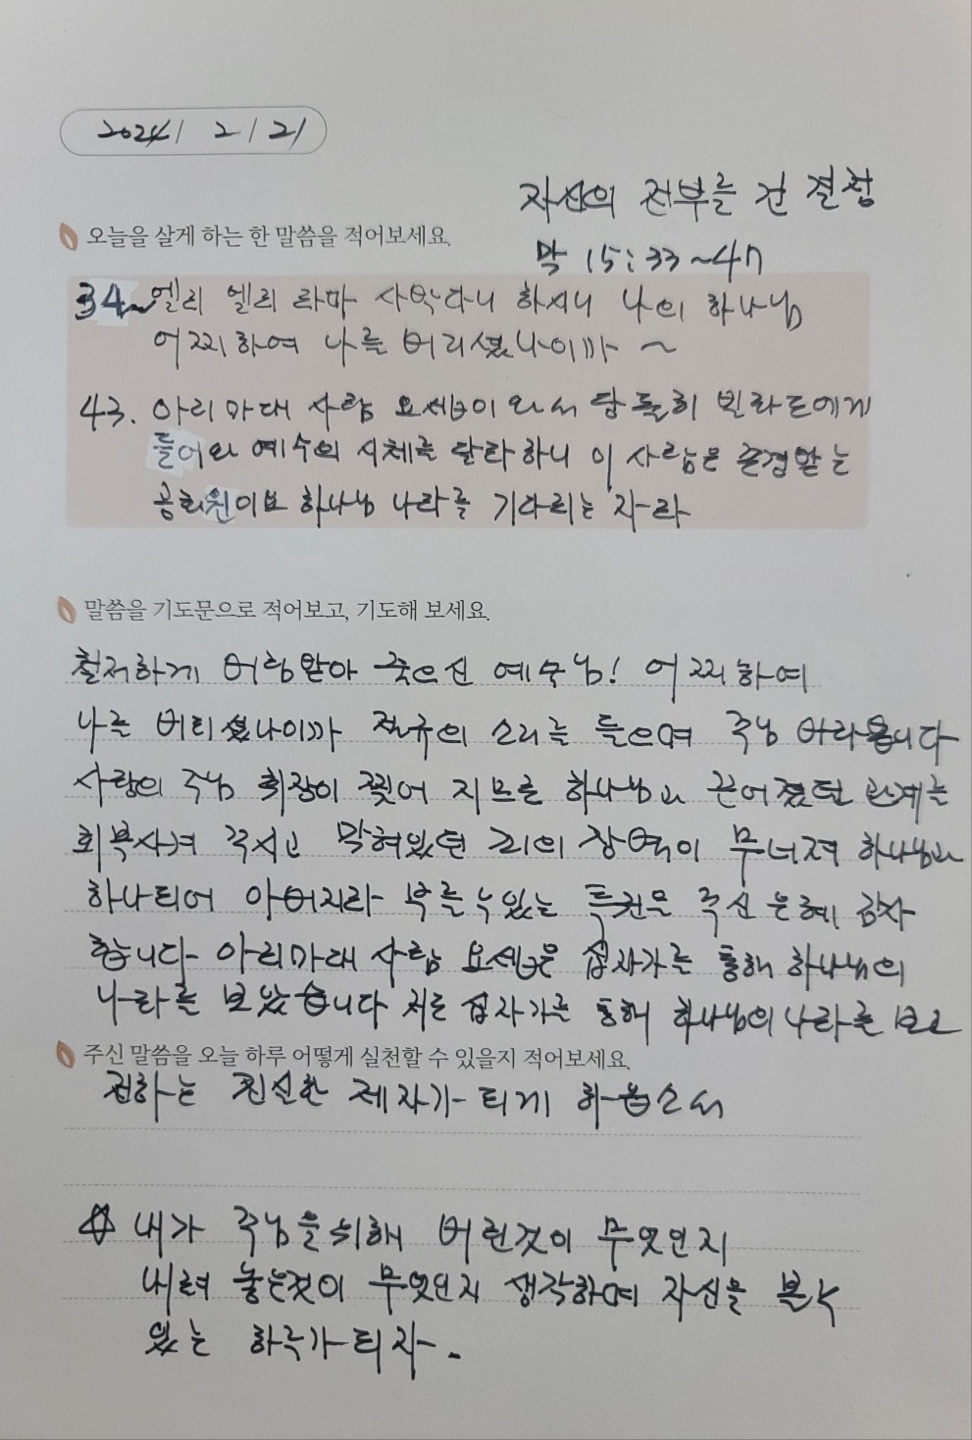 2024/ 2/ 21
자신의 전부를 건 결정
오늘을 살게 하는 한 말씀을 적어보세요.
막 15:33~47
34~ 엘리 엘리 라마 사박다니 하시니 나의 하나님
어찌하여 나를 버리셨나이까 ~
43. 아리마대 사람 요셉이 와서 당돌히 빌라도에게
들어와 예수의 시체를 달라하니 이 사람은 존경받는
공회원이요 하나님 나라를 기다리는 자라
말씀을 기도문으로 적어보고, 기도해 보세요.
철저하게 버림받아 죽으신 예수님! 어찌하여
나를 버리셨나이까 절규의 소리를 들으며 주님 바라봅니다
사랑의 주님 휘장이 찢어 지므로 하나님과 끈어졌던 관계를
회복시켜 주시고 막혀있던 죄의 장벽이 무너져 하나님과
하나되어 아버지라 부를수있는 특권을 주신 은혜 감사
합니다 아리마대 사람 요셉은 십자가를 통해 하나님의
나라를 보았습니다 저도 십자가를 통해 하나님의 나라를 보고
주신 말씀을 오늘 하루 어떻게 실천할 수 있을지 적어보세요.
전하는 진실한 제자가 되게 하옵소서
☆ 내가 주님을 위해 버린것이 무엇인지
내려 놓는것이 무엇인지 생각하며 자신을 볼수
있는 하루가 되자.